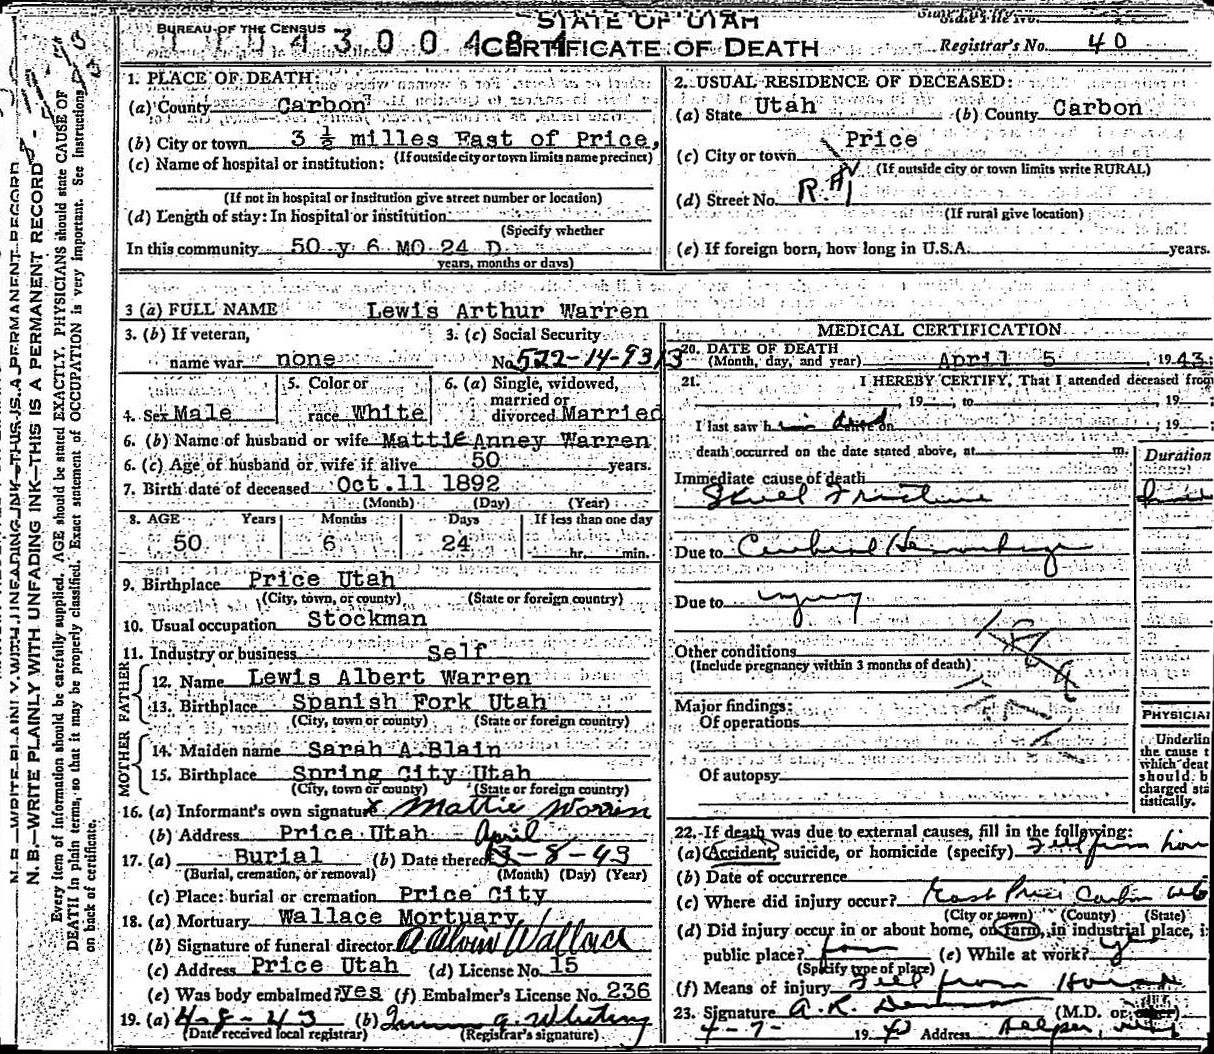 STATE OF UTAH
BUREAU OF THE CENSUS
CERTIFICATE OF DEATH
Registrar's No. 40
1. PLACE OF DEATH:
(a) County Carbon
(b) City or town 3 ½ milles East of Price,
(If outside city or town limits name precinct)
(c) Name of hospital or institution:
(If not in hospital or institution give street number or location)
(d) Length of stay: In hospital or institution
(Specify whether
In this community 50 y 6 MO 24 D
years, months or days)
2. USUAL RESIDENCE OF DECEASED:
(a) State Utah (b) County Carbon
(c) City or town Price
(If outside city or town limits write RURAL)
(d) Street No. R.#1
(If rural give location)
(e) If foreign born, how long in U.S.A. years.
3 (a) FULL NAME Lewis Arthur Warren
3. (b) If veteran,
name war none
3. (c) Social Security
No. 522-14-9313
4. Sex Male
5. Color or
race White
6. (a) Single, widowed,
married or
divorced Married
6. (b) Name of husband or wife Mattie Anney Warren
6. (c) Age of husband or wife if alive 50 years.
7. Birth date of deceased Oct.11 1892
(Month) (Day) (Year)
8. AGE Years Months Days If less than one day
50 6 24 hr. min.
9. Birthplace Price Utah
(City, town, or county) (State or foreign country)
10. Usual occupation Stockman
11. Industry or business Self
FATHER
12. Name Lewis Albert Warren
13. Birthplace Spanish Fork Utah
(City, town or county) (State or foreign country)
MOTHER
14. Maiden name Sarah A.Blain
15. Birthplace Spring City Utah
(City, town or county) (State or foreign country)
16. (a) Informant's own signature x Mattie Warren
(b) Address Price Utah
17. (a) Burial (b) Date thereof April 8-43
(Burial, cremation, or removal) (Month) (Day) (Year)
(c) Place: burial or cremation Price City
18. (a) Mortuary Wallace Mortuary
(b) Signature of funeral director A Alvin Wallace
(c) Address Price Utah (d) License No. 15
(e) Was body embalmed? yes (f) Embalmer's License No. 236
19. (a) 4-8-43 (b) G. Whiting
(Date received local registrar) (Registrar's signature)
MEDICAL CERTIFICATION
20. DATE OF DEATH
(Month, day, and year) April 5 1943
21. I HEREBY CERTIFY, That I attended deceased from
, 19 , to , 19 ;
I last saw him dead alive on , 19 ;
death occurred on the date stated above, at m.
Duration
Immediate cause of death
Skull Fracture
Due to Cerebral Hemorrhage
Due to injury
Other conditions
(Include pregnancy within 3 months of death)
Major findings:
Of operations
Of autopsy
PHYSICIAN
Underline
the cause t
which deat
should b
charged sta
tistically.
22. If death was due to external causes, fill in the following:
(a) Accident, suicide, or homicide (specify) Fell from hors
(b) Date of occurrence
(c) Where did injury occur? East Price Carbon Utah
(City or town) (County) (State)
(d) Did injury occur in or about home, on farm, in industrial place, i
public place? farm (e) While at work? yes
(Specify type of place)
(f) Means of injury Fell from Horse
23. Signature A.R. (M.D. or other)
4-7- 1943 Address Helper, Utah
N. B.—WRITE PLAINLY WITH UNFADING INK—THIS IS A PERMANENT RECORD
Every item of information should be carefully supplied. AGE should be stated EXACTLY. PHYSICIANS should state CAUSE OF
DEATH in plain terms, so that it may be properly classified. Exact statement of OCCUPATION is very important. See instructions
on back of certificate.